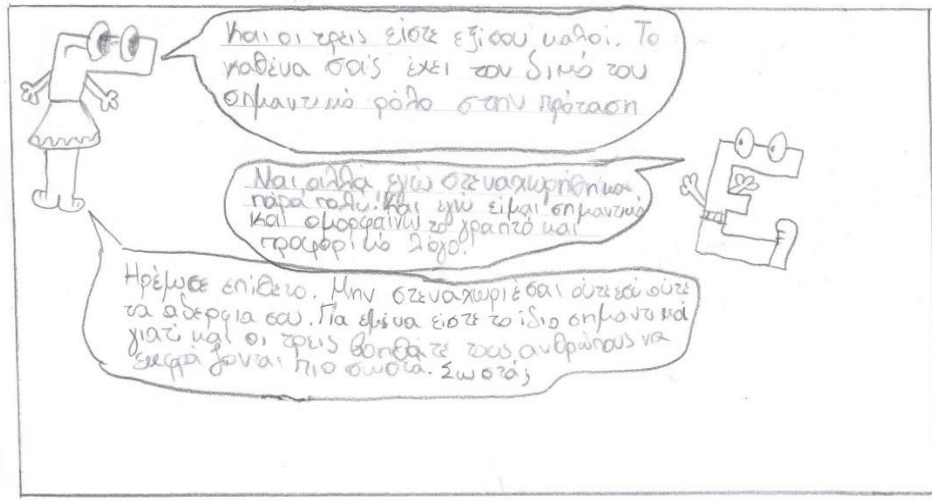 Και οι τρεις είστε εξίσου καλοί. Το
καθένα σας έχει τον δικό του
σημαντικό ρόλο στην πρόταση
Ναι, αλλά εγώ στεναχωρήθηκα
πάρα πολύ! Και εγώ είμαι σημαντικό
και ομορφαίνω το γραπτό και
προφορικό λόγο!
Ηρέμησε επίθετο. Μην στεναχωριέσαι ούτε εσύ ούτε
τα αδέρφια σου. Για εμένα είστε το ίδιο σημαντικά
γιατί και οι τρεις βοηθάτε τους ανθρώπους να
εκφράζονται πιο σωστά. Σωστά;